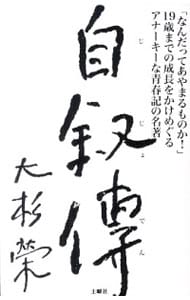 「なんだってあやまるものか！」
19歳までの成長をかけめぐる
アナーキーな青春記の名著
自叙傳
じじょでん
大杉栄
土曜社